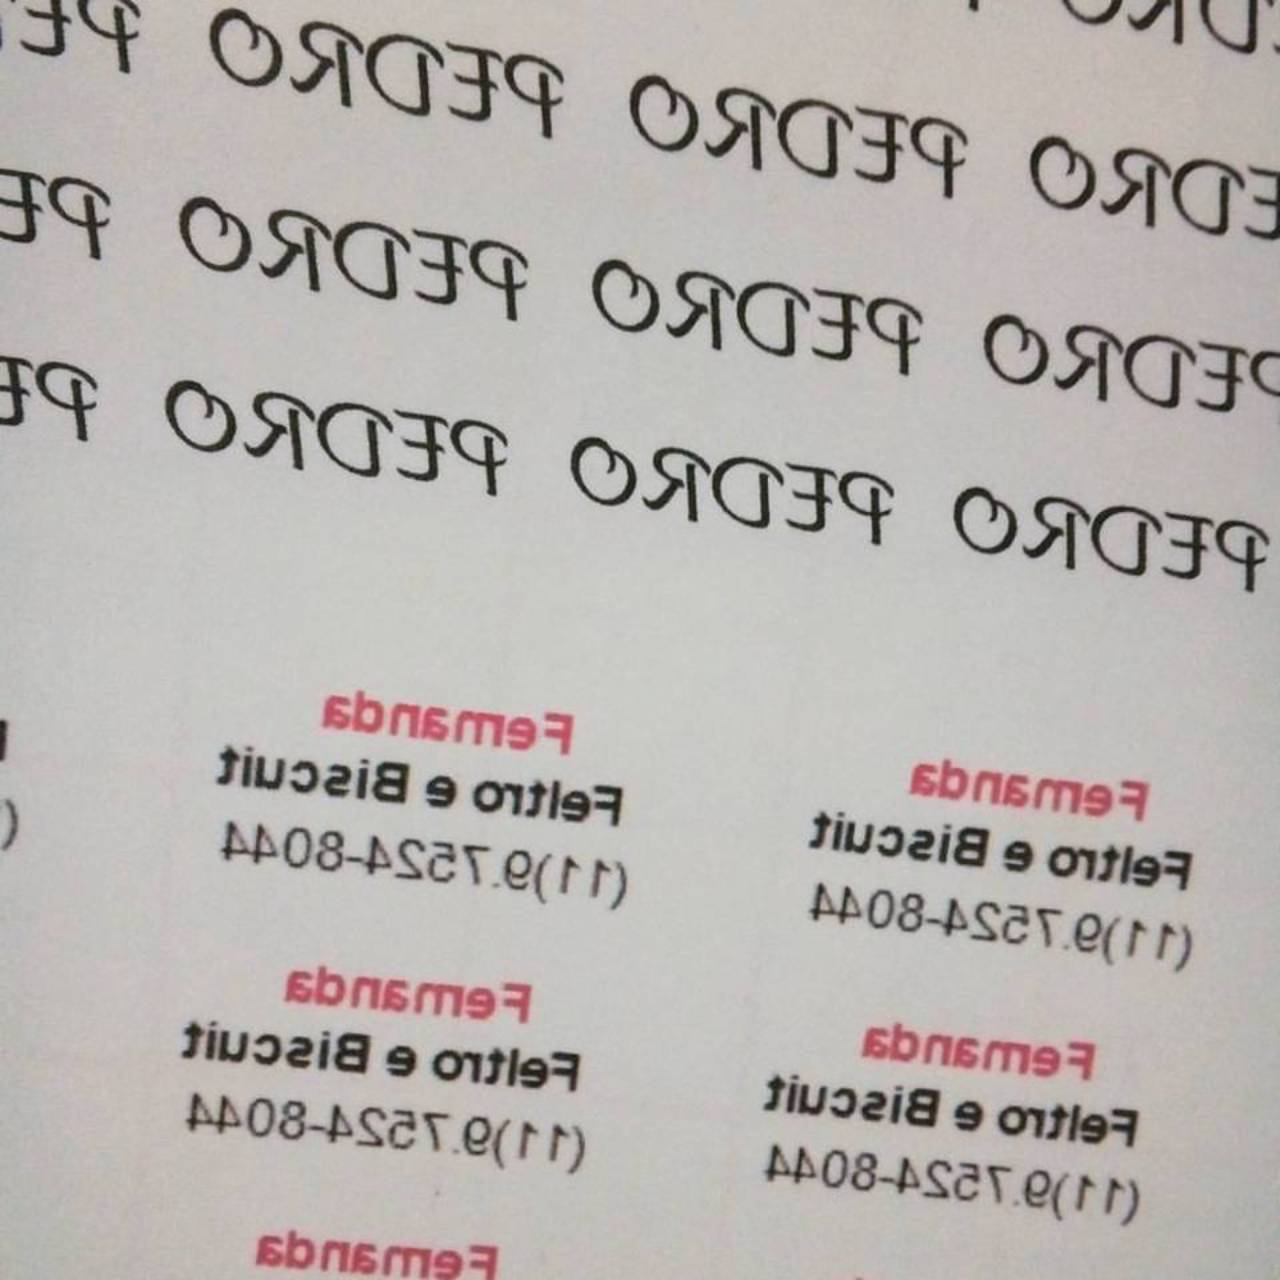 EDRO PEDRO PEDRO PE
PEDRO PEDRO PEDRO PE
PEDRO PEDRO PEDRO PE
Fernanda
Feltro e Biscuit
(11)9.7524-8044
Fernanda
Feltro e Biscuit
(11)9.7524-8044
Fernanda
Feltro e Biscuit
(11)9.7524-8044
Fernanda
Feltro e Biscuit
(11)9.7524-8044
Fernanda